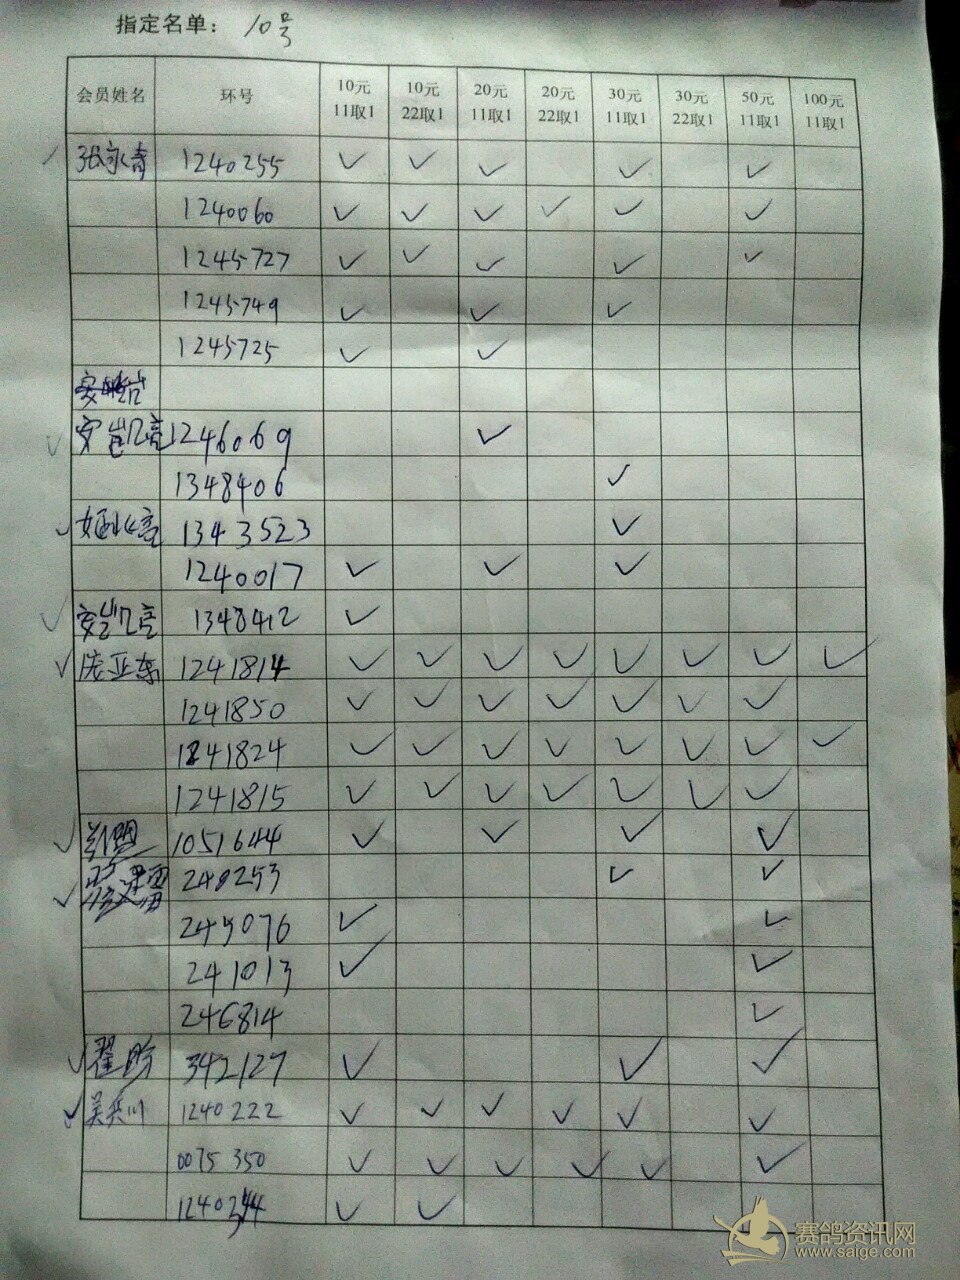 指定名单： 10号
会员姓名 环号 10元 11取1 10元 22取1 20元 11取1 20元 22取1 30元 11取1 30元 22取1 50元 11取1 100元 11取1
✓ 张永青 1240255 ✓ ✓ ✓ ✓ ✓
1240060 ✓ ✓ ✓ ✓ ✓ ✓
1245727 ✓ ✓ ✓ ✓ ✓
1245749 ✓ ✓ ✓
1245725 ✓ ✓
✓ 1246069 ✓
1348406 ✓
✓ 1343523 ✓
1240017 ✓ ✓ ✓
✓ 1348412 ✓
✓ 庞亚东 1241814 ✓ ✓ ✓ ✓ ✓ ✓ ✓ ✓
1241850 ✓ ✓ ✓ ✓ ✓ ✓ ✓
1841824 ✓ ✓ ✓ ✓ ✓ ✓ ✓ ✓
1241815 ✓ ✓ ✓ ✓ ✓ ✓ ✓
✓ 1051644 ✓ ✓ ✓ ✓
✓ 240253 ✓ ✓
245076 ✓ ✓
241013 ✓ ✓
246814 ✓
✓ 翟盼 342127 ✓ ✓ ✓
✓ 1240222 ✓ ✓ ✓ ✓ ✓ ✓
0075350 ✓ ✓ ✓ ✓ ✓ ✓
✓ ✓
赛鸽资讯网
www.saige.com